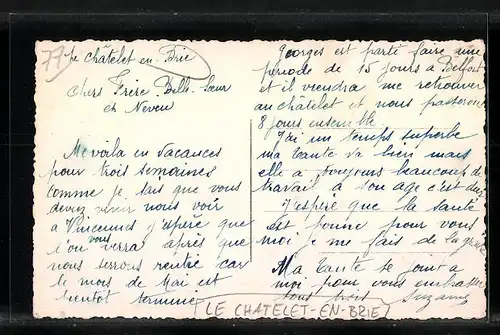 77
Le châtelet en Brie
chers Frère Belle-Soeur
et Neveu
Me voila en Vacances
pour trois semaines
comme je sais que vous
devez venir nous voir
à Vincennes j'espère que
l'on vous verra après que
nous serrons rentré car
le mois de Mai est
bientôt terminé
Georges est parti faire une
période de 15 jours à Belfort
et il viendra me retrouver
au châtelet et nous passerons
8 jours ensemble
J'ai un temps superbe
ma tante va bien mais
elle a toujours beaucoup de
travail à son age c'est dur
J'espère que la santé
est bonne pour vous
moi je me fais de la graisse
Ma tante se joint a
moi pour vous embrasser
tous trois Suzanne
(LE CHATELET-EN-BRIE)